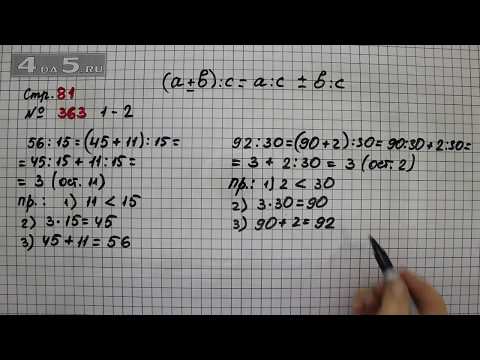 4DA5.RU
(a±b):c=a:c ±b:c
Стр.81
№ 363 1-2
56:15=(45+11):15=
=45:15+11:15=
=3 (ост. 11)
пр.: 1) 11<15
2) 3·15=45
3) 45+11=56
92:30=(90+2):30=90:30+2:30=
=3+2:30=3 (ост. 2)
пр.: 1) 2<30
2) 3·30=90
3) 90+2=92